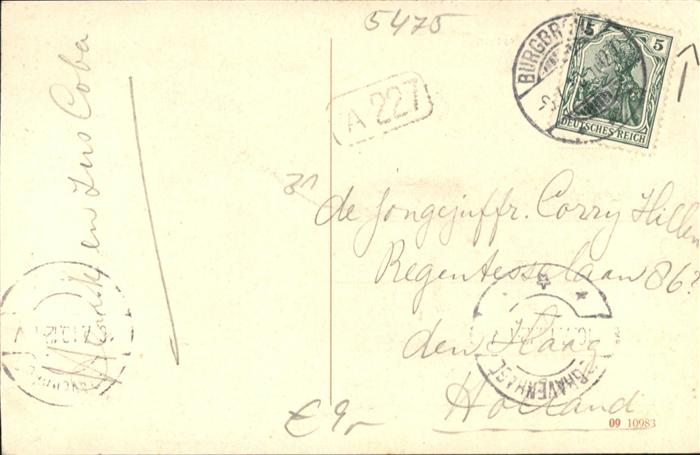 5475
BURGBRO
5 5
DEUTSCHES REICH
A 227
en Zus Coba
de Jongejuffr. Corry Hillen
Regentesselaan 86
den Haag
Holland
GRAVENHAGE
€ 9,-
09 10983